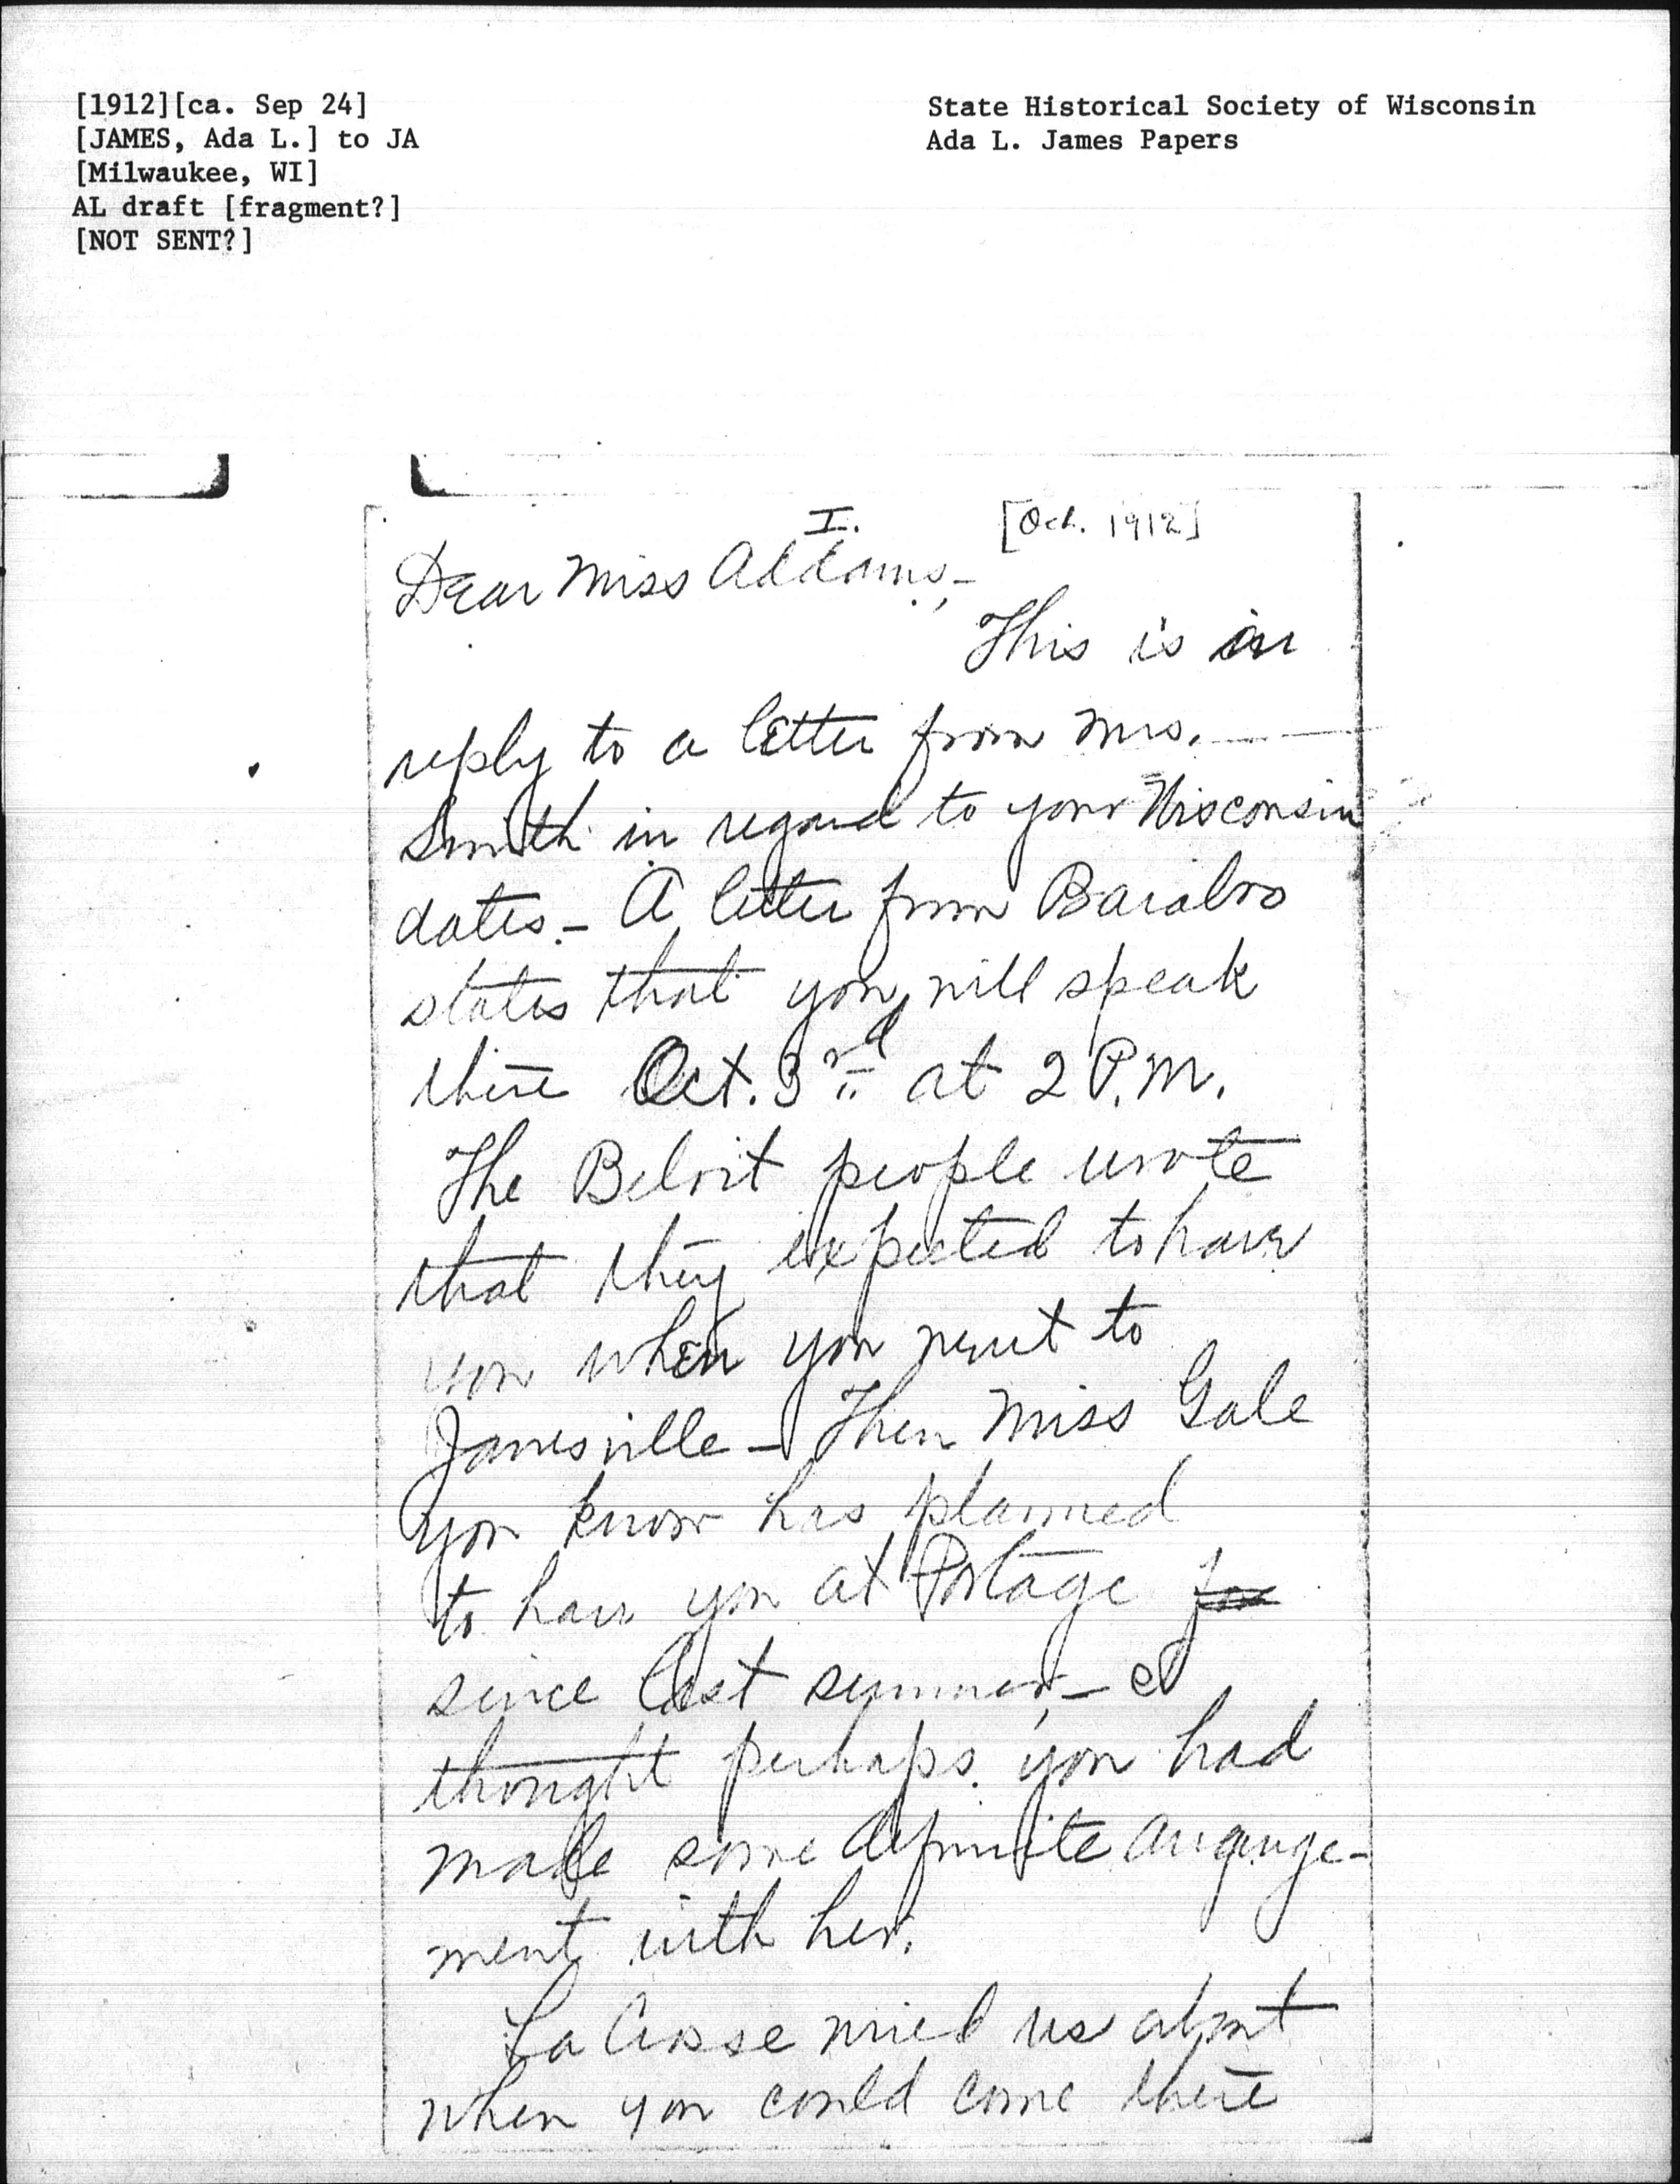 [1912][ca. Sep 24]
[JAMES, Ada L.] to JA
[Milwaukee, WI]
AL draft [fragment?]
[NOT SENT?]
State Historical Society of Wisconsin
Ada L. James Papers
I.
[Oct. 1912]
Dear Miss Addams,-
This is in
reply to a letter from Mrs.
Smith in regard to your Wisconsin
dates.- A letter from Baraboo
states that you will speak
there Oct. 3rd at 2 P.M.
The Beloit people wrote
that they expected to have
you when you went to
Janesville - Then Miss Gale
you know has planned
to have you at Portage for
since last summer,- I
thought perhaps you had
made some definite arrange-
ment with her.
La Crosse wired us about
when you could come there